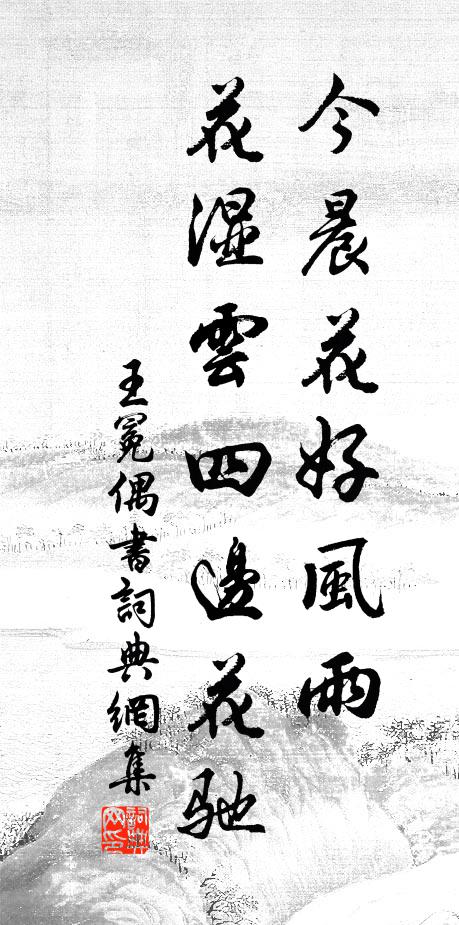 今晨花好風雨
花濕雲四邊花馳
王冕偶書詞典網集